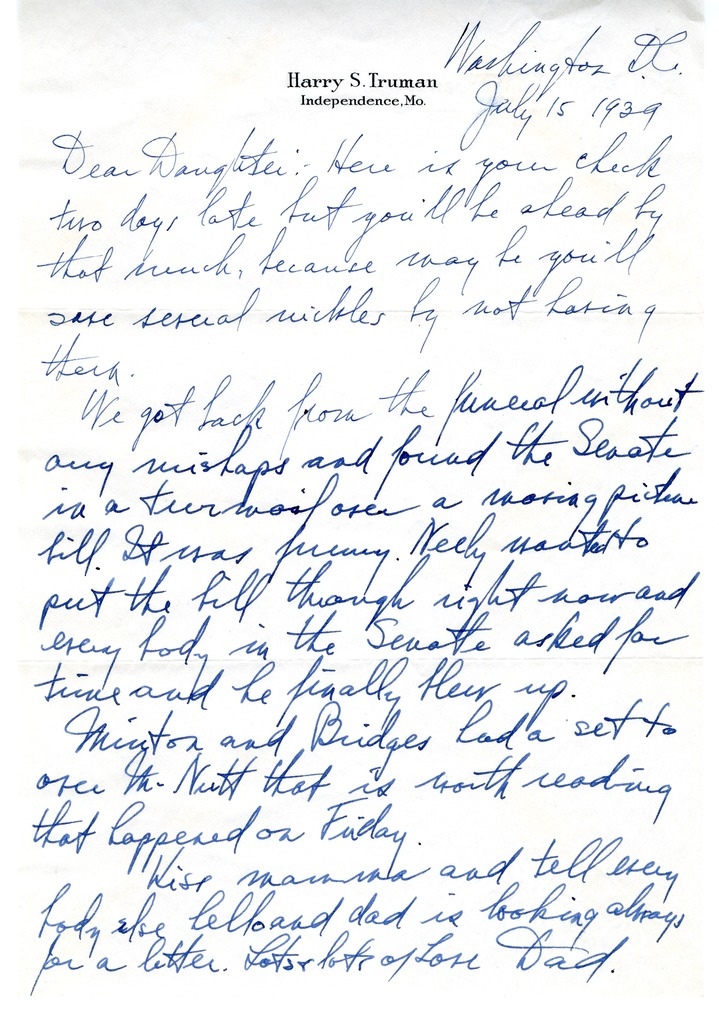 Washington D.C.
Harry S. Truman
Independence, Mo.
July 15 1939
Dear Daughter:- Here is your check
two days late but you'll be ahead by
that much, because may be you'll
save several nickles by not having
them.
We got back from the funeral without
any mishaps and found the Senate
in a turmoil over a moving picture
bill. It was funny. Neely wanted to
put the bill through right now and
every body in the Senate asked for
time and he finally blew up.
Minton and Bridges had a set to
over McNutt that is worth reading
that happened on Friday.
Kiss mamma and tell every
body else hello and dad is looking always
for a letter. Lots & lots of love Dad.